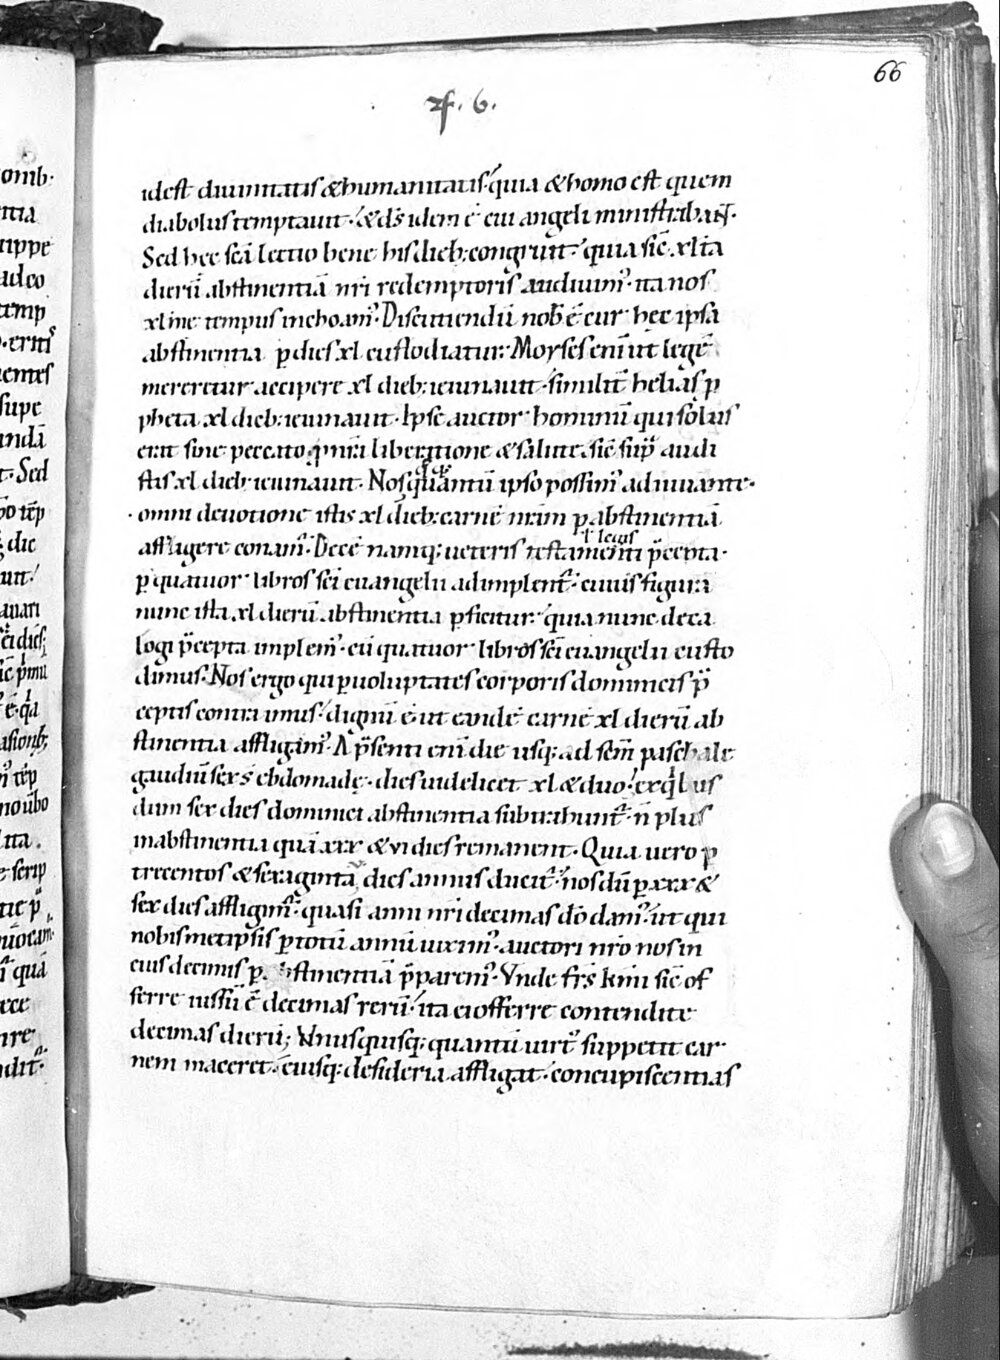 66
idest diuinitatis & humanitatis. quia & homo est quem
diabolus temptauit. & ds̄ idem ē cui angeli ministrabant.
Sed hec sc̄a lectio bene his dieb; congruit. quia sic̄ xlta
dierū abstinentiā nr̄i redemptoris audiuim᾽. ita nos
xl me tempus inchoam᾽. Discutiendū nob̄ ē cur hec ipsa
abstinentia p dies xl custodiatur. Moyses enī ut legē
mereretur accipere xl dieb; ieiunauit. similit̄ helias p
pheta xl dieb; ieiunauit. Ipse auctor hominū qui solus
erit sine peccato. p nr̄a liberatione & salute. sic̄ sup̄ audi
stis xl dieb; ieiunauit. Nosq; quantū ipso possim᾽ adiuuante.
omni deuotione istis xl dieb; carnē nr̄am p abstinentiā
l legis
affligere conam᾽. Decē namq; ueteris testamenti p̄cepta.
p quatuor libros sc̄i euangelii adimplent᾽. cuius figura
nunc ista xl dierū abstinentia pficitur. quia nunc deca
logi p̄cepta implem᾽. cū quatuor libros sc̄i euangelii custo
dimus. Nos ergo qui p uoluptates corporis dominicis p̄
ceptis contraimus. dignū ē ut eandē carnē xl dierū ab
stinentia affligam᾽. A p̄senti enī die usq; ad sc̄m paschale
gaudiū sex s̄ ebdomadę. dies uidelicet xl & duo. ex qibus
dum sex dies dominici abstinentia subtrahunt᾽. n̄ plus
in abstinentia quā xxx & vi dies remanent. Quia uero p
trecentos & sexaginta dies annus ducit᾽. nos dū p xxx &
sex dies affligim᾽. quasi anni nr̄i decimas dō dam᾽. ut qui
nobismetipsis p totū annū uixim᾽. auctori nr̄o nos in
eius decimis p abstinentiā p̄parem᾽. Vnde fr̄s km̄i sic̄ of
ferre iussū ē decimas rerū. ita ei offerre contendite
decimas dierū; Vnusquisq; quantū uirt᾽ suppetit car
nem maceret. eiusq; desideria affligat. concupiscentias